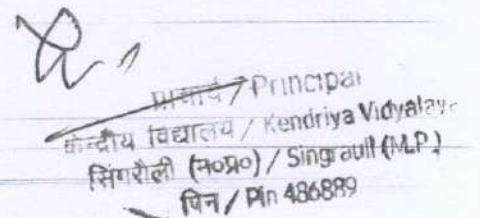 प्राचार्य / Principal
केन्द्रीय विद्यालय / Kendriya Vidyalaya
सिंगरौली (म०प्र०) / Singrauli (M.P.)
पिन / Pin 486889